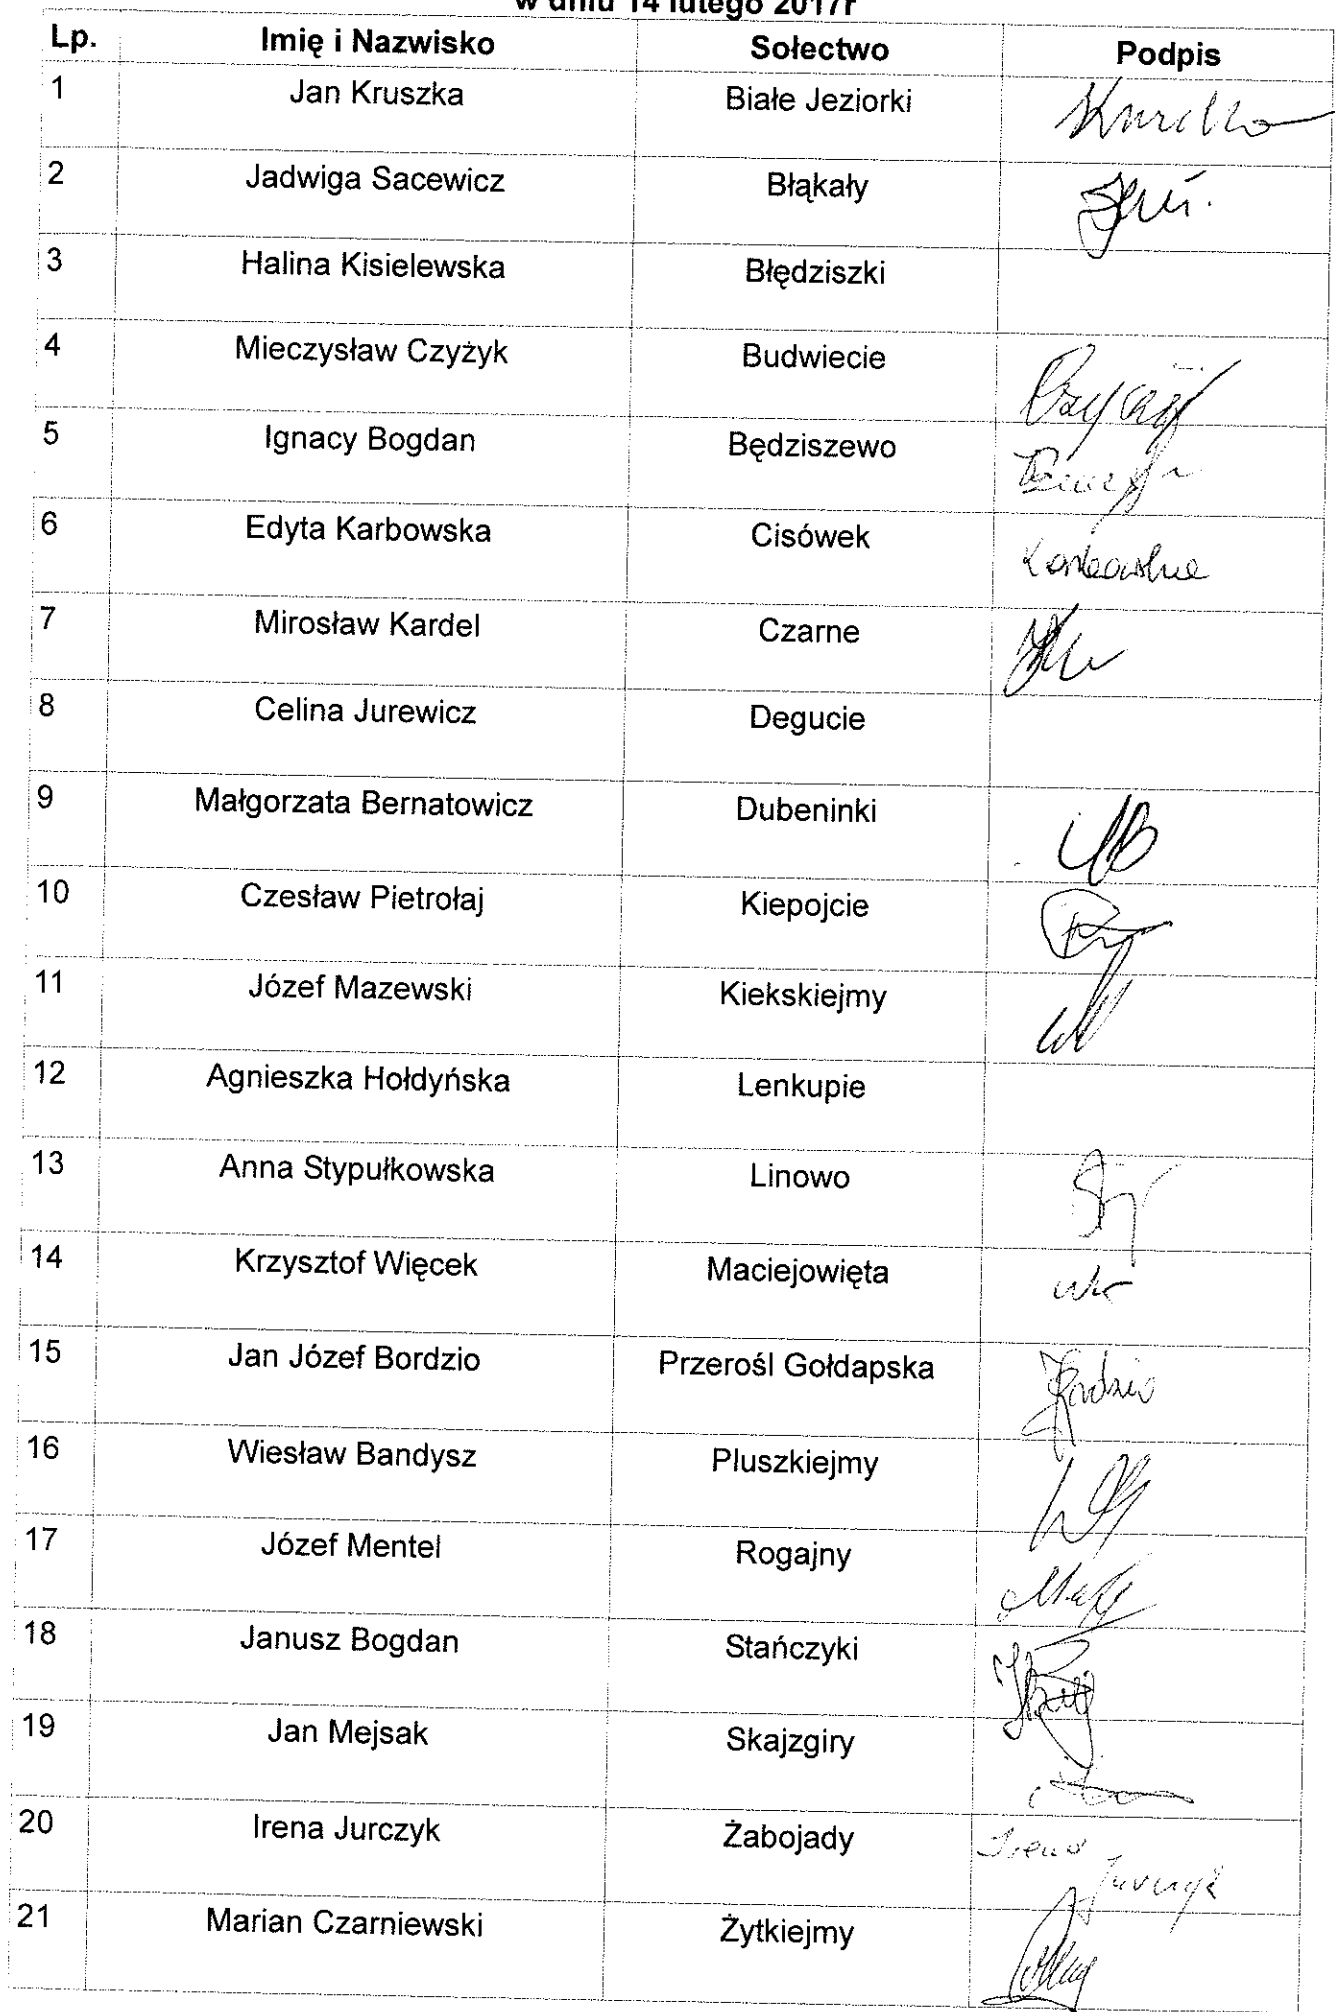 w dniu 14 lutego 2017r
Lp. Imię i Nazwisko Sołectwo Podpis
1 Jan Kruszka Białe Jeziorki
2 Jadwiga Sacewicz Błąkały
3 Halina Kisielewska Błędziszki
4 Mieczysław Czyżyk Budwiecie
5 Ignacy Bogdan Będziszewo
6 Edyta Karbowska Cisówek
7 Mirosław Kardel Czarne
8 Celina Jurewicz Degucie
9 Małgorzata Bernatowicz Dubeninki
10 Czesław Pietrołaj Kiepojcie
11 Józef Mazewski Kiekskiejmy
12 Agnieszka Hołdyńska Lenkupie
13 Anna Stypułkowska Linowo
14 Krzysztof Więcek Maciejowięta
15 Jan Józef Bordzio Przerośl Gołdapska
16 Wiesław Bandysz Pluszkiejmy
17 Józef Mentel Rogajny
18 Janusz Bogdan Stańczyki
19 Jan Mejsak Skajzgiry
20 Irena Jurczyk Żabojady Irena Jurczyk
21 Marian Czarniewski Żytkiejmy